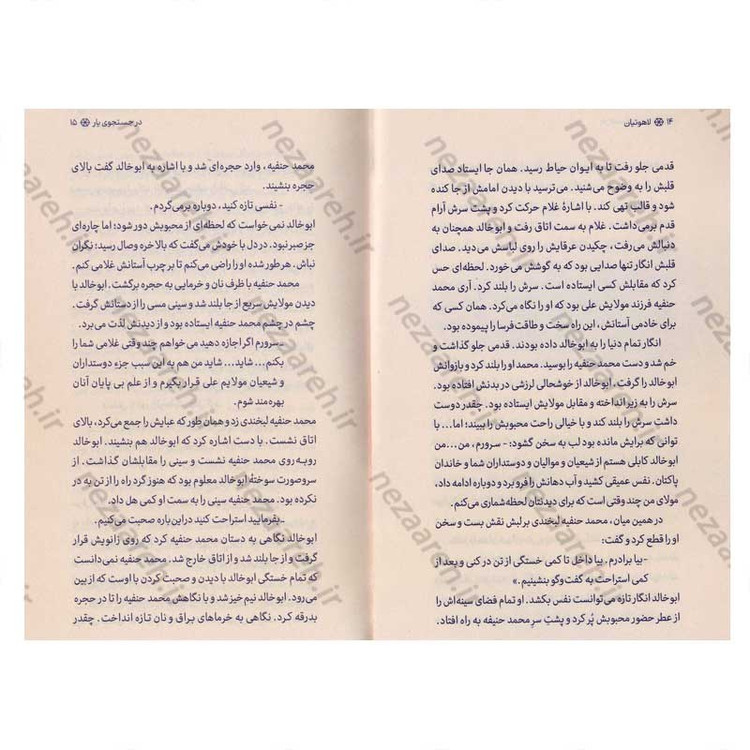 ۱۴ لاهوتیان
قدمی جلو رفت تا به ایوان حیاط رسید. همان جا ایستاد صدای
قلبش را به وضوح می‌شنید. می‌ترسید با دیدن امامش از جا کنده
شود و قالب تهی کند. با اشارهٔ غلام حرکت کرد و پشت سرش آرام
قدم برمی‌داشت. غلام به سمت اتاق رفت و ابوخالد همچنان به
دنبالش می‌رفت، چکیدن عرقایش را روی لباسش می‌دید. صدای
قلبش انگار تنها صدایی بود که به گوشش می خورد. لحظه‌ای حس
کرد که مقابلش کسی ایستاده است. سرش را بلند کرد. آری محمد
حنفیه فرزند مولایش علی بود که او را نگاه می‌کرد. همان کسی که
برای خادمی آستانش، این راه سخت و طاقت‌فرسا را پیموده بود.
انگار تمام دنیا را به ابوخالد داده بودند. قدمی جلو گذاشت و
خم شد و دست محمد حنفیه را بوسید. محمد او را بلند کرد و بازوانش
ابوخالد را گرفت، ابوخالد از خوشحالی لرزشی در بدنش افتاده بود.
سرش را به زیر انداخته و مقابل مولایش ایستاده بود. چقدر دوست
داشت سرش را بلند کند و با خیالی راحت محبوبش را ببیند؛ اما... با
توانی که برایش مانده بود لب به سخن گشود؛ - سرورم، من...من
ابوخالد کابلی هستم از شیعیان و موالیان و دوستداران شما و خاندان
پاکتان. نفس عمیقی کشید و آب دهانش را فرو برد و دوباره ادامه داد،
مولای من چند وقتی است که برای دیدنتان لحظه‌شماری می‌کنم.
در همین میان، محمد حنفیه لبخندی بر لبش نقش بست و سخن
او را قطع کرد و گفت:
-بیا برادرم. بیا داخل تا کمی خستگی از تن در کنی و بعد از
کمی استراحت به گفت‌وگو بنشینیم.»
ابوخالد انگار تازه می‌توانست نفس بکشد. او تمام فضای سینه‌اش را
از عطر حضور محبوبش پُر کرد و پشتِ سرِ محمد حنفیه به راه افتاد.
در جستجوی یار ۱۵
محمد حنفیه، وارد حجره‌ای شد و با اشاره به ابوخالد گفت بالای
حجره بنشیند.
- نفسی تازه کنید، دوباره برمی‌گردم.
ابوخالد نمی‌خواست که لحظه‌ای از محبوبش دور شود؛ اما چاره‌ای
جز صبر نبود. در دل با خودش می‌گفت که بالاخره وصال رسید؛ نگران
نباش. هر طور شده او را راضی می‌کنم تا بر چرب آستانش غلامی کنم.
محمد حنفیه با ظرف نان و خرمایی به حجره برگشت. ابوخالد با
دیدن مولایش سریع از جا بلند شد و سینی مسی را از دستانش گرفت.
چشم در چشم محمد حنفیه ایستاده بود و از دیدنش لذّت می‌برد.
ـ سرورم اگر اجازه دهید می خواهم چند وقتی غلامی شما را
بکنم... شاید... شاید من هم به این سبب جزء دوستداران
و شیعیان مولایم علی قرار بگیرم و از علم بی پایان آنان
بهره‌مند شوم.
محمد حنفیه لبخندی زد و همان طور که عبایش را جمع می‌کرد، بالای
اتاق نشست. با دست اشاره کرد که ابوخالد هم بنشیند. ابوخالد
روبه‌روی محمد حنفیه نشست و سینی را مقابلشان گذاشت. از
سروصورت سوختهٔ ابوخالد معلوم بود که هنوز گرد راه را از تن به در
نکرده بود. محمد حنفیه سینی را به سمت او کمی هل داد.
ـ بفرمایید استراحت کنید در این‌باره صحبت می‌کنیم.
ابوخالد نگاهی به دستان محمد حنفیه کرد که روی زانویش قرار
گرفت و از جا بلند شد و از اتاق خارج شد. محمد حنفیه نمی‌دانست
که تمام خستگی ابوخالد با دیدن و صحبت کردن با اوست که از بین
می‌رود. ابوخالد نیم خیز شد و با نگاهش محمد حنفیه را تا در حجره
بدرقه کرد. نگاهی به خرماهای براق و نان تازه انداخت. چقدر
nezaareh.ir